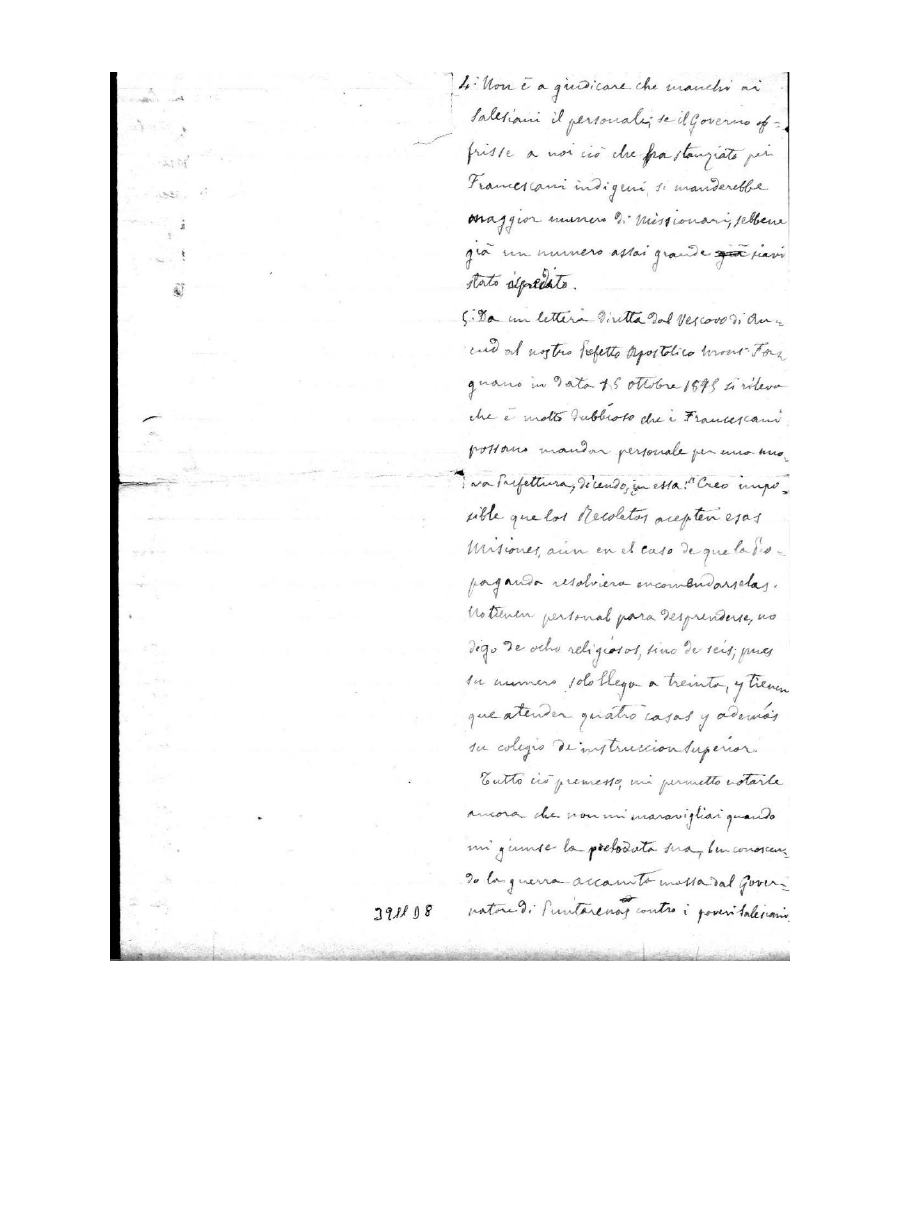 4.° Non è a giudicare che manchi ai
Salesiani il personale; se il Governo of=
frisse a noi ciò che ha stanziato pei
Francescani indigeni, si manderebbe
maggior numero di Missionari, sebbene
già un numero assai grande già siavi
stato spedito.
5.° Da un lettera diretta dal Vescovo di An=
cud al nostro Prefetto Apostolico Mons. Fa
gnano in data 15 Ottobre 1895 si rileva
che è molto dubbioso che i Francescani
possano mandar personale per una nuo
va Prefettura, dicendo, in essa: "Creo impo=
sible que los Recoletos acepten esas
Misiones, aún en el caso de que la Pro=
paganda resolviera encomendarselas.
No tienen personal para desprenderse, no
digo de ocho religiosos, sino de seis; pues
su numero solo llega a treinta, y tienen
que atender quatro casas y además
su colegio de instruccion superior.
Tutto ciò premesso, mi permetto notarle
ancora che non mi maravigliai quando
mi giunse la prelodata sua, ben conoscen=
do la guerra accanita mossa dal Gover=
natore di Puntarenas contro i poveri Salesiani